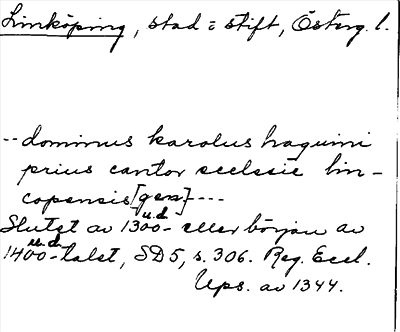 Linköping, stad o stift, Österg. l.
-- dominus karolus haquini
prius cantor ecclesie lin-
copensis [gen] ----
Slutet av 1300- eller början av
u.d.
1400-talet, SD5, s. 306. Reg. Eccl.
u.d.
Ups. av 1344.